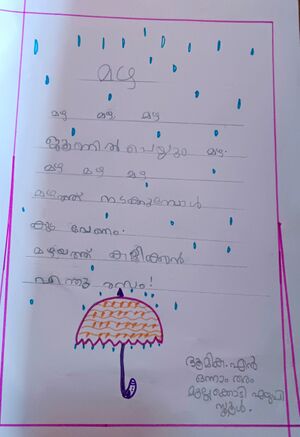 മഴ
മഴ മഴ മഴ
ജൂണിൽ പെയ്യും മഴ.
മഴ മഴ മഴ
മഴത്ത് നടക്കുമ്പോൾ
കുട വേണം.
മഴയത്ത് കളിക്കാൻ
എന്തു രസം!
ആമിക. എൻ
ഒന്നാം തരം
മുല്ലക്കൊടി എയുപി
സ്കൂൾ.